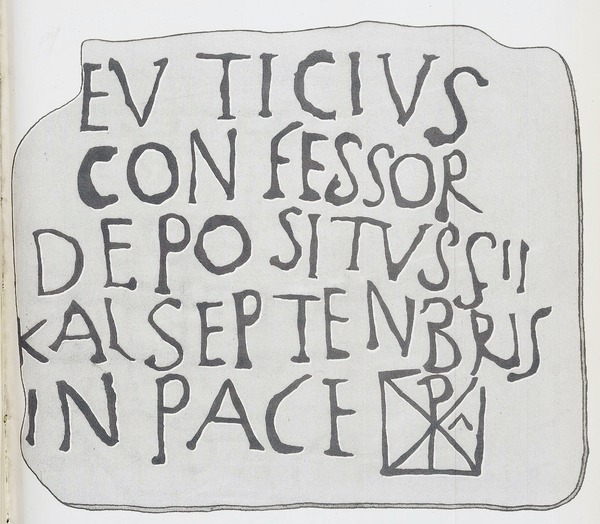 EVTICIVS
CONFESSOR
DEPOSITVS ϛII
KAL SEPTENBRIS
IN PACE ☧